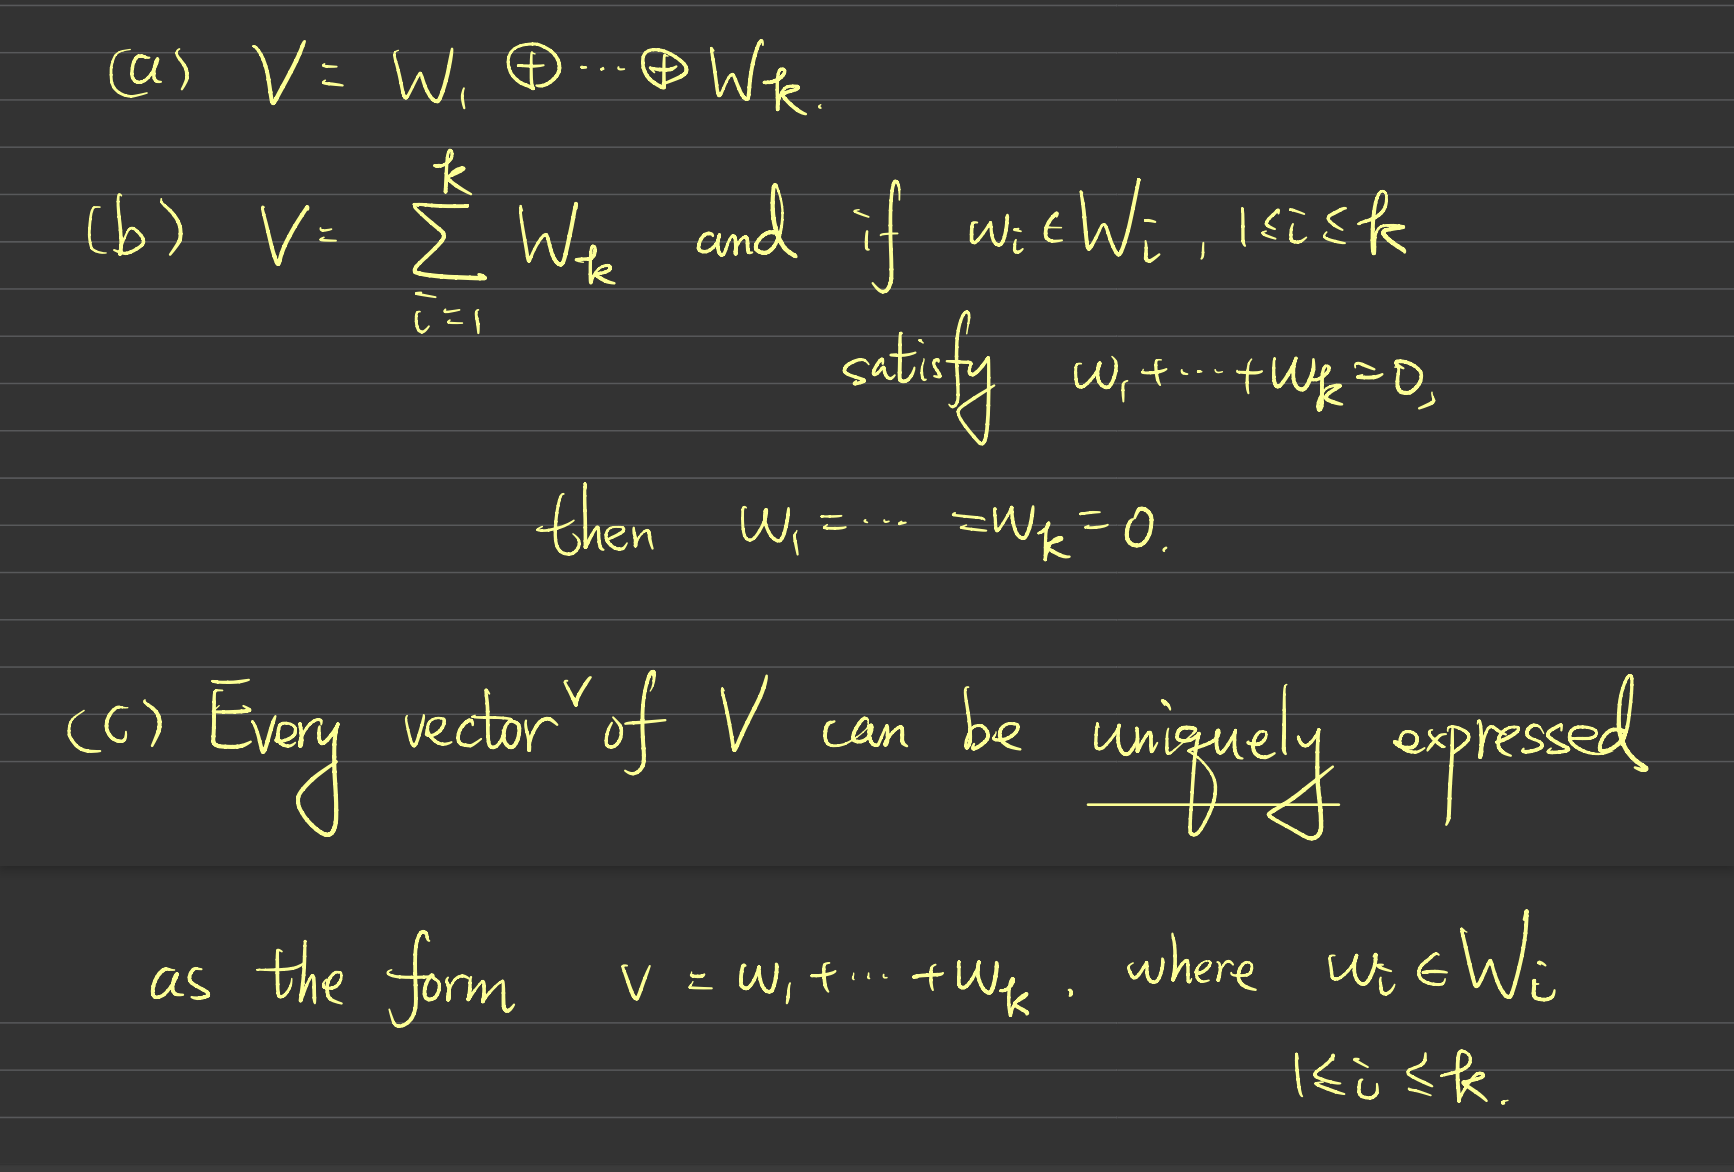 (a) V = W₁ ⊕ ··· ⊕ Wₖ.
(b) V = ∑ᵢ₌₁ᵏ Wₖ and if wᵢ ∈ Wᵢ, 1 ≤ i ≤ k
satisfy w₁ + ··· + wₖ = 0,
then w₁ = ··· = wₖ = 0.
(c) Every vector v of V can be uniquely expressed
as the form v = w₁ + ··· + wₖ. where wᵢ ∈ Wᵢ
1 ≤ i ≤ k.